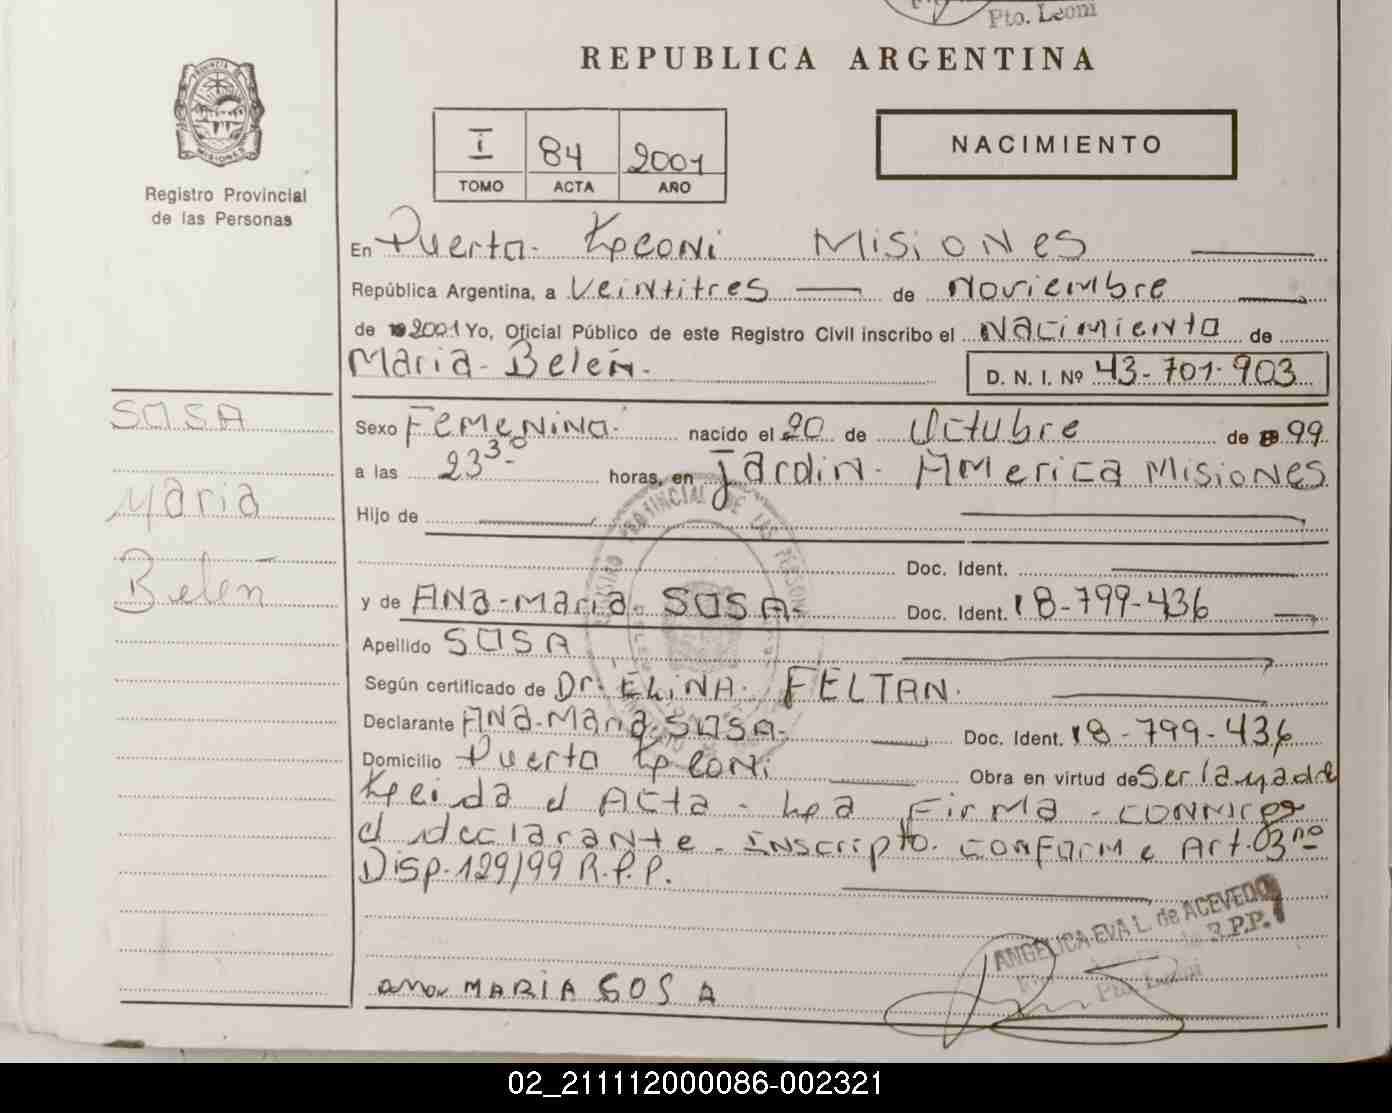 Pto. Leoni
REPUBLICA ARGENTINA
PROVINCIA
MISIONES
Registro Provincial
de las Personas
I 84 2001
TOMO ACTA AÑO
NACIMIENTO
En Puerto Leoni Misiones
República Argentina, a Veintitres de Noviembre
de 2001 Yo, Oficial Público de este Registro Civil inscribo el Nacimiento de
Maria Belén
D. N. I. Nº 43-701-903
SOSA
Maria
Belén
Sexo Femenino nacido el 20 de Octubre de 99
a las 23 30 horas, en Jardin America Misiones
Hijo de
Doc. Ident.
y de Ana Maria SOSA Doc. Ident. 18-799-436
Apellido SOSA
Según certificado de Dr. ELINA FELTAN
Declarante Ana Maria SOSA Doc. Ident. 18-799-436
Domicilio Puerto Leoni Obra en virtud de Ser la madre
Leida el Acta La Firma conmigo
el declarante Inscripto conforme Art. 03
Disp. 129/99 R.P.P.
ANGELICA EVA L. de ACEVEDO
R.P.P.
Pto. Leoni
MARIA SOSA
02_211112000086-002321